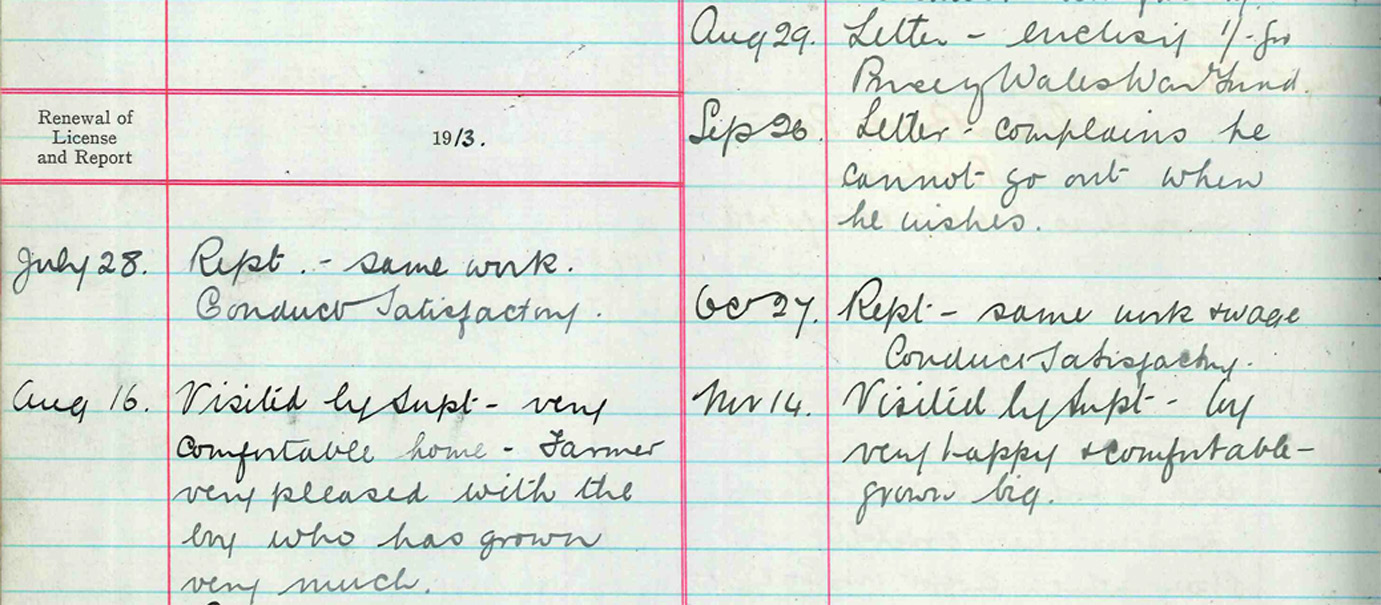 Renewal of
License
and Report
1913.
July 28. Rept. - same work.
Conduct Satisfactory.
Aug 16. Visited by Supt - very
comfortable home - Farmer
very pleased with the
boy who has grown
very much.
Aug 29. Letter - enclosing 1/- for
Wales War Fund.
Sep 26. Letter - complains he
cannot go out when
he wishes.
Oct 27. Rept - same work & wage
Conduct Satisfactory.
Nov 14. Visited by Supt - boy
very happy & comfortable -
grown big.